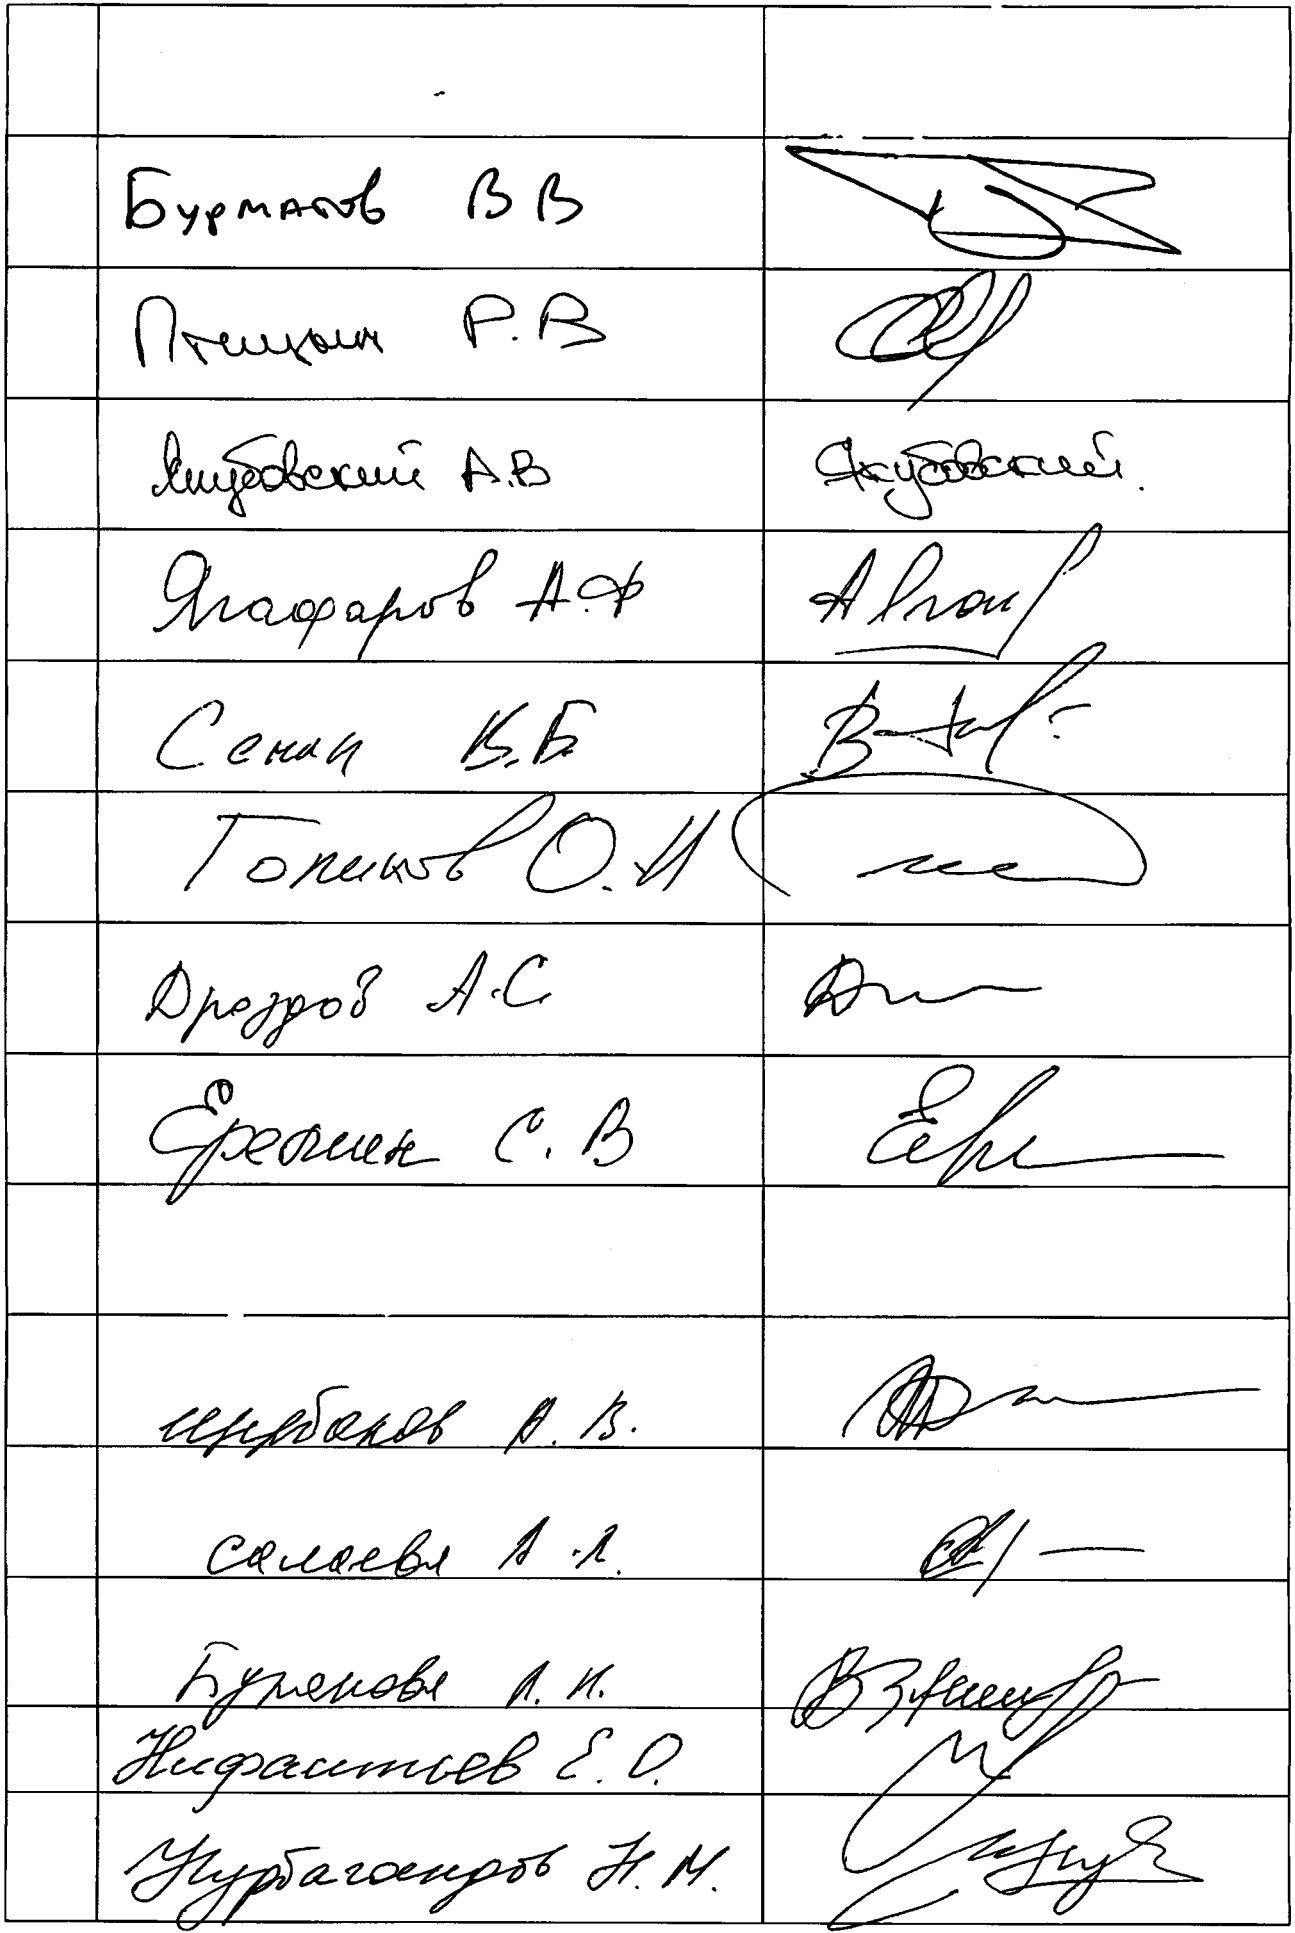 Бурматов В В
Птицын Р.В
Якубовский А.В Якубовский.
Ягафаров А.Ф
Сенин В.Б
Топиков О.И
Дроздов А.С
Еремин С.В
щербаков А.В.
А.Л.
А.Н.
Нифантьев Е.О.
Нурбагандов Н.М.